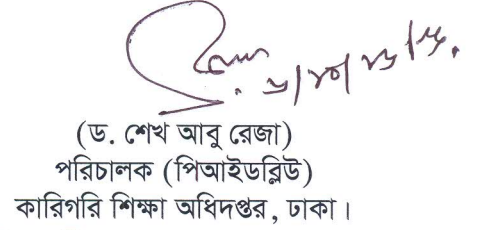 (ড. শেখ আবু রেজা)
পরিচালক (পিআইডব্লিউ)
কারিগরি শিক্ষা অধিদপ্তর, ঢাকা।